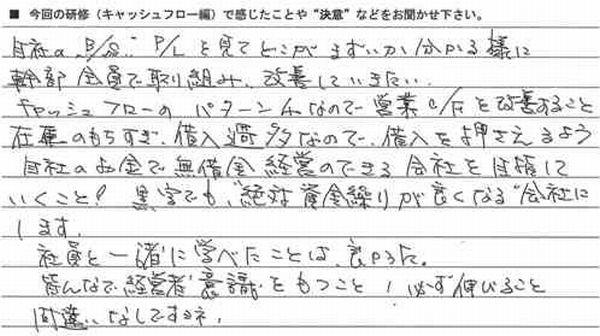 ■ 今回の研修（キャッシュフロー編）で感じたことや“決意”などをお聞かせ下さい。
自社の“B/S”“P/Lを見てどこがまずいか分かる様に
幹部全員で取り組み、改善していきたい。
キャッシュフローのパターン4なので営業C/Fを改善すること
在庫のもちすぎ、借入過多なので、借入を押さえるよう
自社のお金で無借金経営のできる会社を目指して
いくこと！黒字でも、“絶対資金繰りが良くなる“会社に
します。
社員と一緒に学べたことは、良かった。
皆んなで“経営者意識”をもつこと！必ず伸びること
間違いなしですネ。